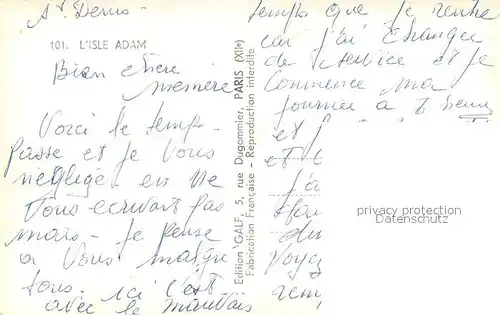 St Denis
101. L'ISLE ADAM
Bien chère
mémère
Voici le temps
passe et je vous
néglige en ne
vous écrivant pas
mais je pense
a vous malgre
tous. ici c'est
avec le mauvais
Edition "GALF", 5, rue Dugommier, PARIS (XIIe)
Fabrication Française - Reproduction interdite
temps que je rentre
car j'ai changer
de service et je
commence ma
journée a 7 heures
et
et
j'a
du
voyag
privacy protection
www.oldthing.de